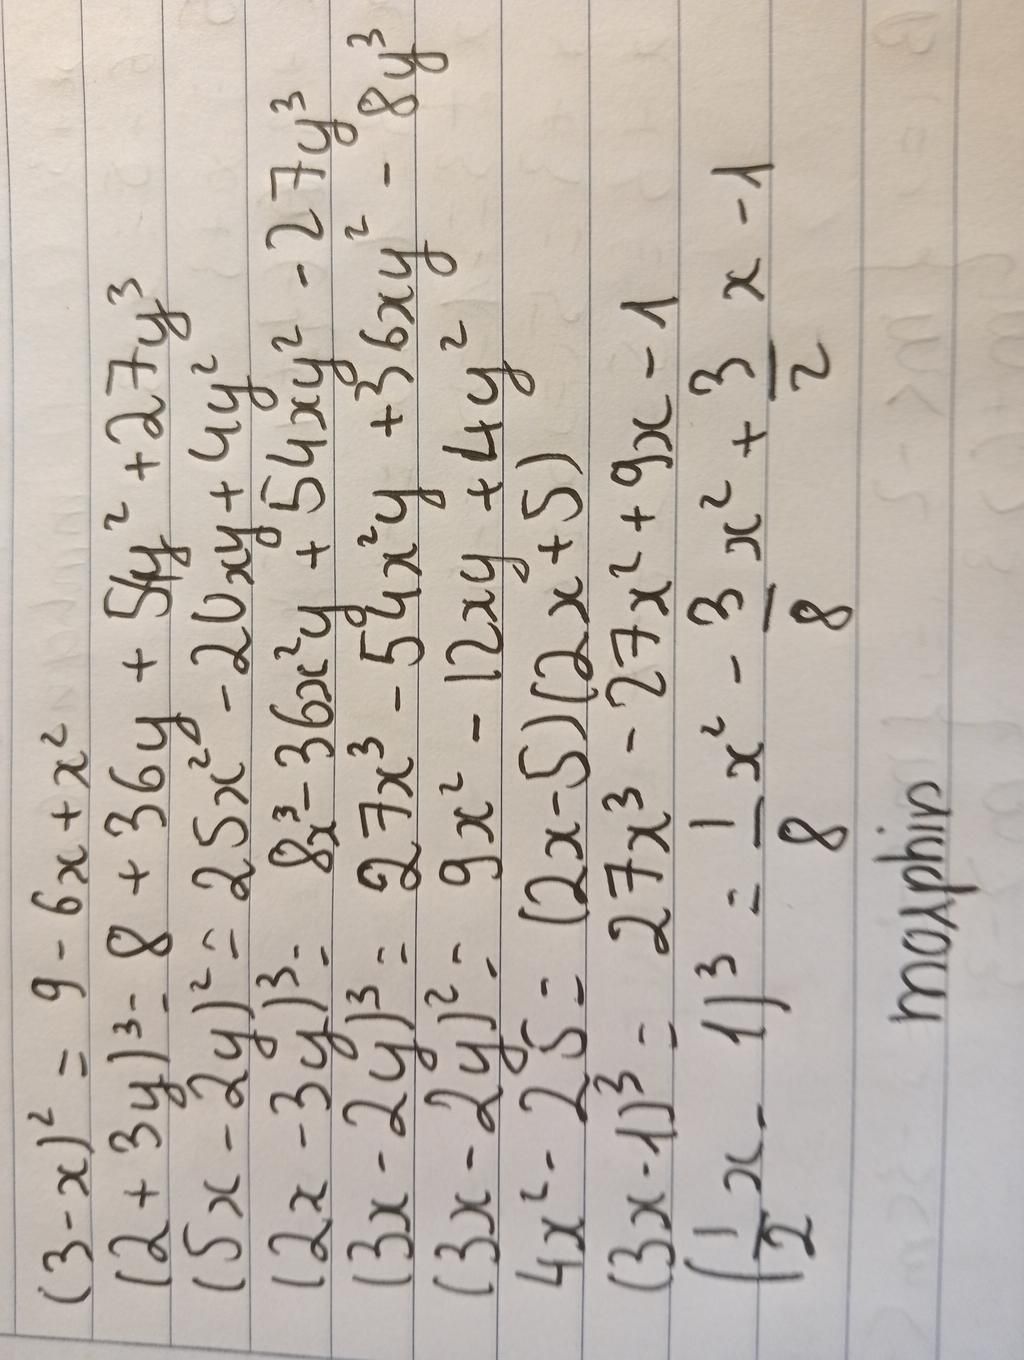 (3-x)² = 9 - 6x + x²
(2 + 3y)³ = 8 + 36y + 54y² + 27y³
(5x - 2y)² = 25x² - 20xy + 4y²
(2x - 3y)³ = 8x³ - 36x²y + 54xy² - 27y³
(3x - 2y)³ = 27x³ - 54x²y + 36xy² - 8y³
(3x - 2y)² = 9x² - 12xy + 4y²
4x² - 25 = (2x-5)(2x+5)
(3x-1)³ = 27x³ - 27x² + 9x - 1
(1/2 x - 1)³ = 1/8 x² - 3/8 x² + 3/2 x - 1
moxphin